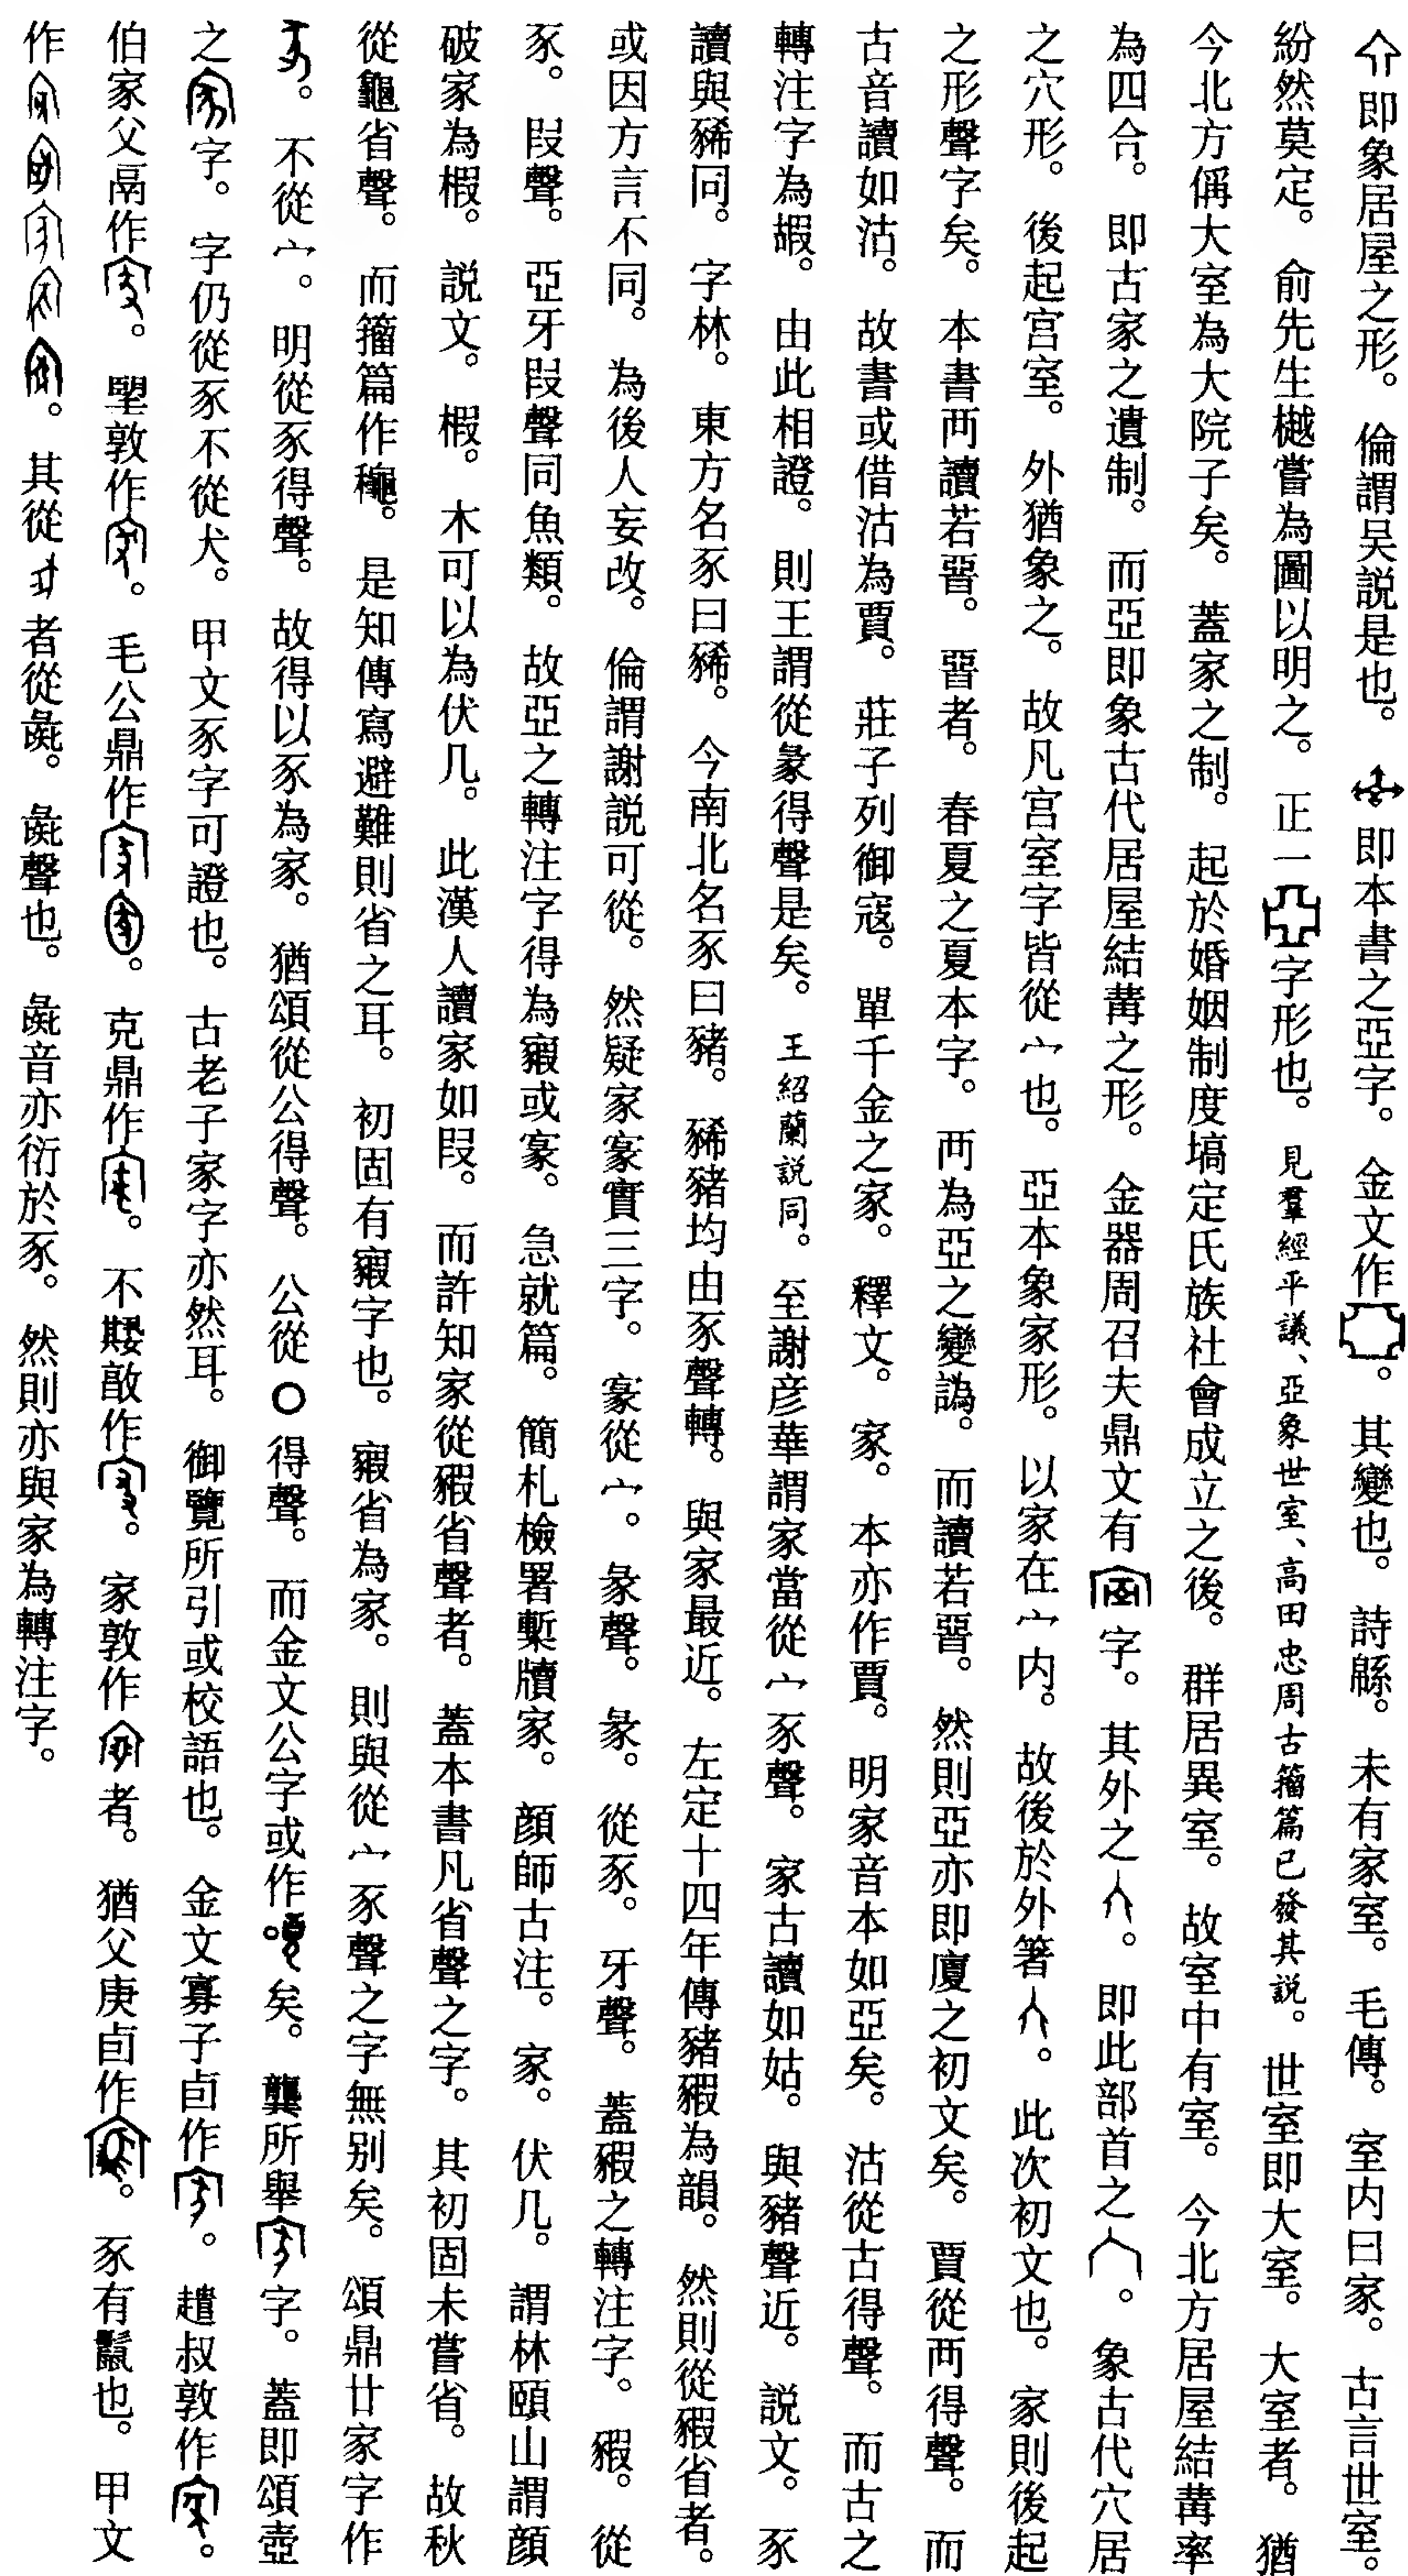 即象居屋之形。倫謂吴説是也。即本書之亞字。金文作。其變也。詩緜。未有家室。毛傳。室内曰家。古言世室。
紛然莫定。俞先生樾嘗為圖以明之。正一字形也。見羣經平議、亞象世室、高田忠周古籀篇已發其説。世室即大室。大室者。猶
今北方偁大室為大院子矣。蓋家之制。起於婚姻制度塙定氏族社會成立之後。群居異室。故室中有室。今北方居屋結冓率
為四合。即古家之遺制。而亞即象古代居屋結冓之形。金器周召夫鼎文有字。其外之。即此部首之。象古代穴居
之穴形。後起宫室。外猶象之。故凡宫室字皆從宀也。亞本象家形。以家在宀内。故後於外箸。此次初文也。家則後起
之形聲字矣。本書襾讀若晋。晋者。春夏之夏本字。襾為亞之變譌。而讀若晋。然則亞亦即廈之初文矣。賈從襾得聲。而
古音讀如沽。故書或借沽為賈。莊子列御寇。單千金之家。釋文。家。本亦作賈。明家音本如亞矣。沽從古得聲。而古之
轉注字為嘏。由此相證。則王謂從豙得聲是矣。王紹蘭説同。至謝彦華謂家當從宀豕聲。家古讀如姑。與豬聲近。説文。豕
讀與豨同。字林。東方名豕曰豨。今南北名豕曰豬。豨豬均由豕聲轉。與家最近。左定十四年傳豬豭為韻。然則從豭省者。
或因方言不同。為後人妄改。倫謂謝説可從。然疑家實三字。從宀。聲。從豕。牙聲。蓋豭之轉注字。豭。從
豕。叚聲。亞牙叚聲同魚類。故亞之轉注字得為或。急就篇。簡札檢署槧牘家。顔師古注。家。伏几。謂林頤山謂顔
破家為椵。説文。椵。木可以為伏几。此漢人讀家如叚。而許知家從豭省聲者。蓋本書凡省聲之字。其初固未嘗省。故秋
從龜省聲。而籀篇作。是知傳寫避難則省之耳。初固有字也。省為家。則與從宀豕聲之字無别矣。頌鼎廿家字作
。不從宀。明從豕得聲。故得以豕為家。猶頌從公得聲。公從○得聲。而金文公字或作矣。龔所舉字。蓋即頌壺
之字。字仍從豕不從犬。甲文豕字可證也。古老子家字亦然耳。御覽所引或校語也。金文寡子卣作。趞叔敦作。
伯家父鬲作。敦作。毛公鼎作。克鼎作。不敦作。家敦作者。猶父庚卣作。豕有鬣也。甲文
作。其從者從彘。彘聲也。彘音亦衍於豕。然則亦與家為轉注字。